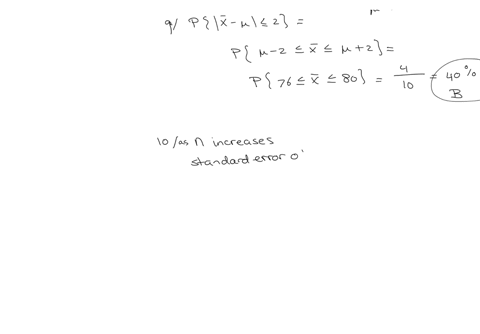 9/ P{|x̄-μ| ≤ 2} =
P{ μ-2 ≤ x̄ ≤ μ+2} =
P{ 76 ≤ x̄ ≤ 80} = 4/10 = 40%
B
10/as n increases
standard error o'